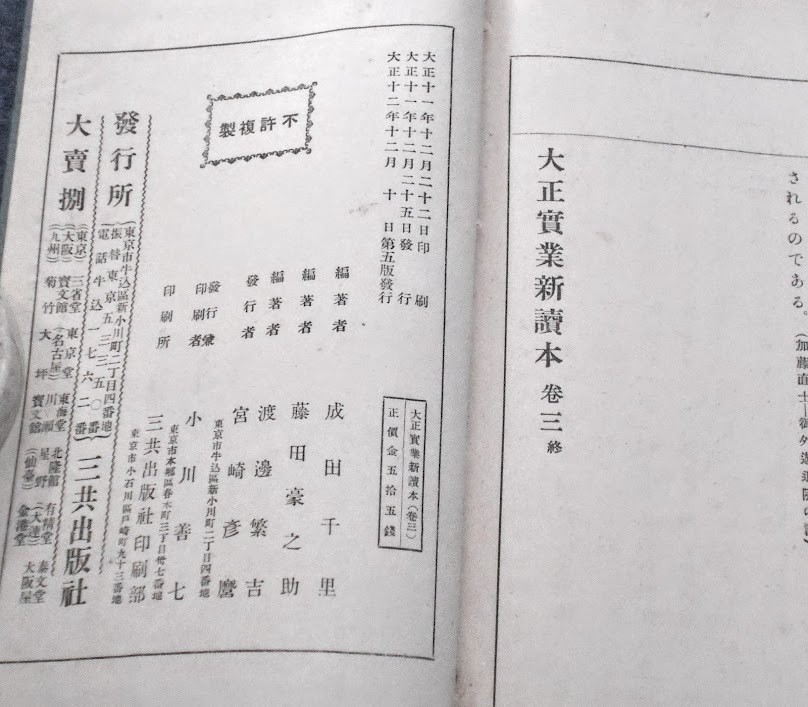 されるのである。
大正實業新讀本 卷三 終
大正十一年十二月二十二日印刷
大正十一年十二月二十五日發行
大正十二年十二月十日第五版發行
大正實業新讀本(卷三)
正價金五拾五錢
不許複製
編著者 成田千里
編著者 藤田豪之助
編著者 渡邊繁吉
發行者 宮崎彦麿
東京市牛込區新小川町二丁目四番地
發行兼
印刷者 小川善七
東京市本郷區春木町三丁目卅七番地
印刷所 三共出版社印刷部
東京市小石川區戸崎町九十三番地
發行所
東京市牛込區新小川町二丁目四番地
振替東京五三三五〇番
電話牛込一七六二番
三共出版社
大賣捌
(東京)三省堂 東京堂 東海堂 北隆館 有精堂 泰文堂
(大阪)寶文館 (名古屋)川瀬 星野 (大連)大阪屋
(九州)菊竹 大坪 寶文館 (仙臺)金港堂